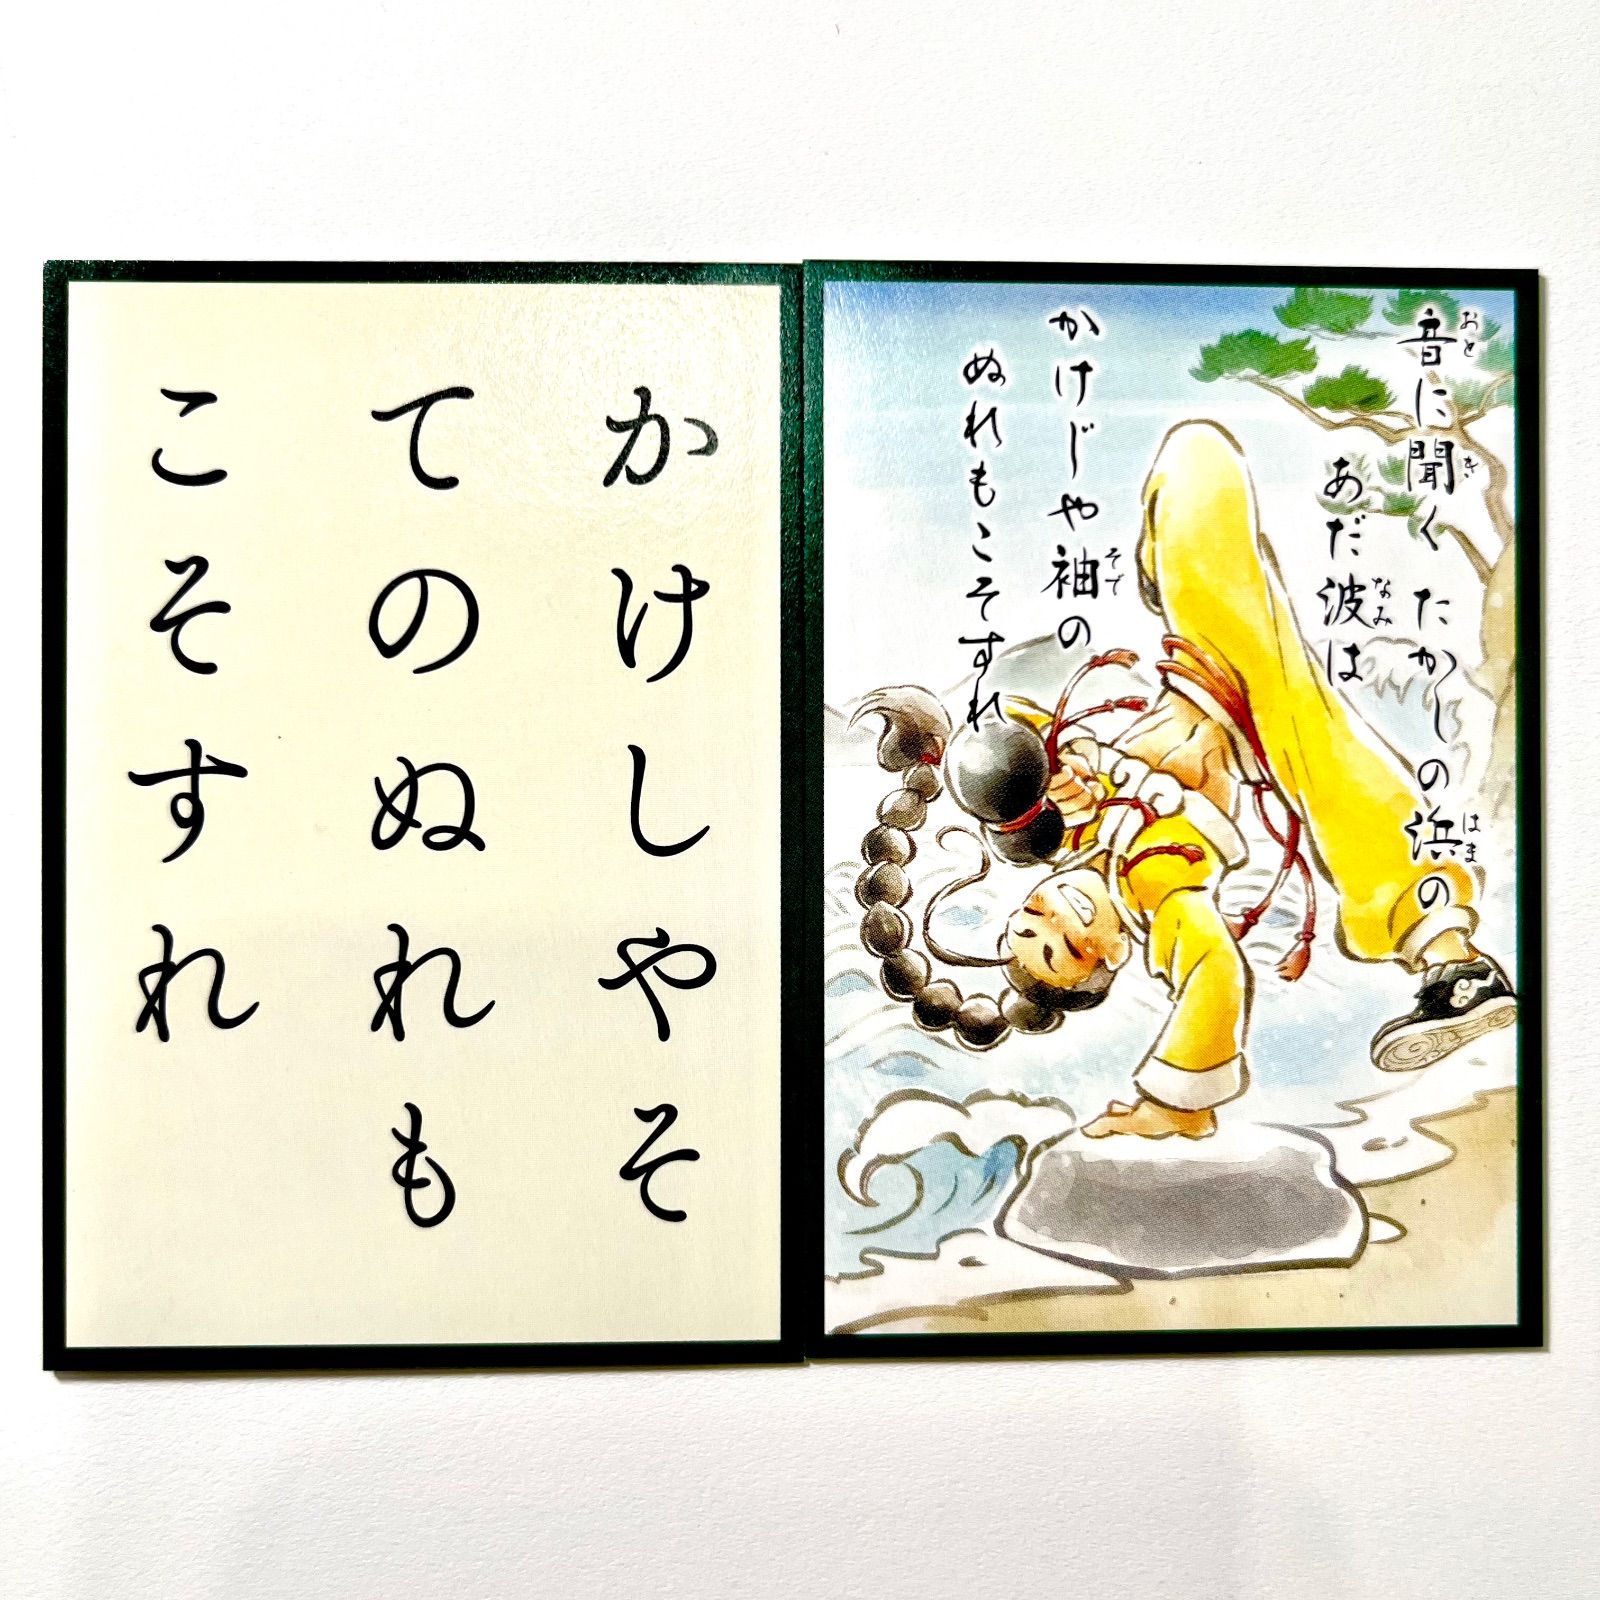 かけしやそ
てのぬれも
こそすれ
音に聞く たかしの浜の
おと き はま
あだ波は
なみ
かけじや袖の
そで
ぬれもこそすれ